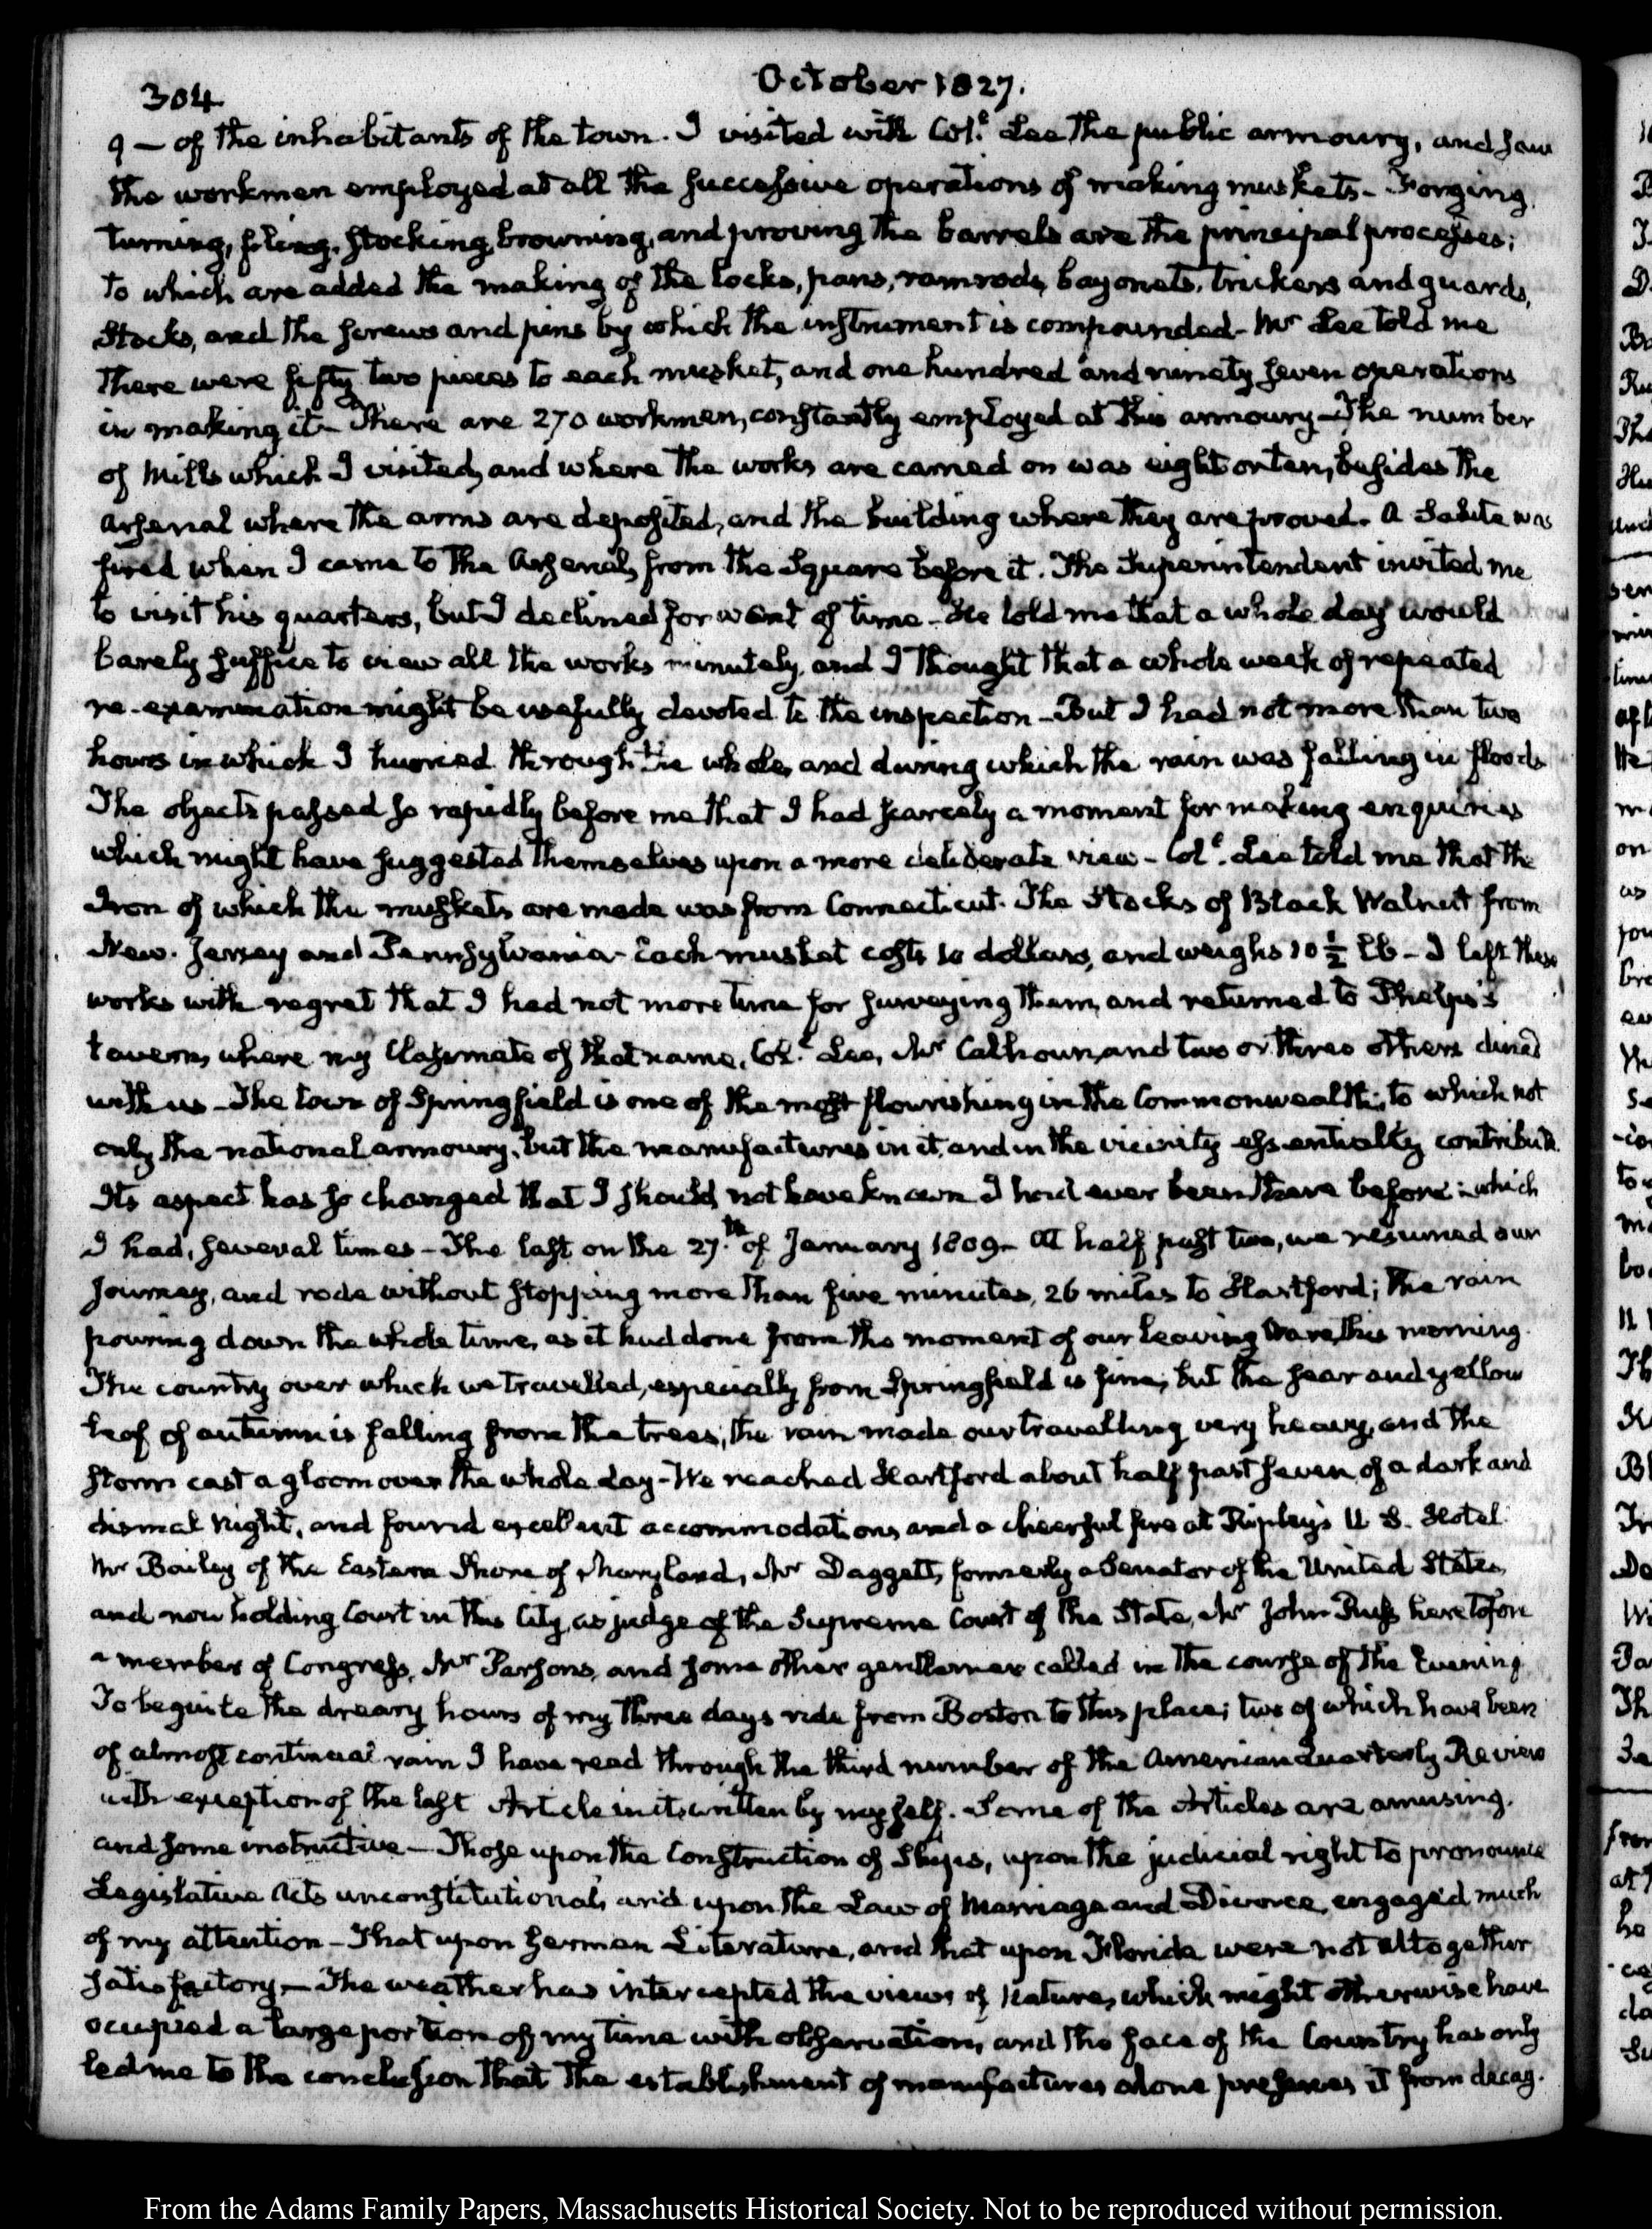 304
October 1827.
9 — of the inhabitants of the town. I visited with Col.ᵉ Lee the public armoury, and saw
the workmen employed at all the successive operations of making muskets - Forging,
turning, filing, stocking, browning, and proving the barrels are the principal processes;
to which are added the making of the locks, pans, ramrods, bayonets, trickers and guards,
Stocks, and the screws and pins by which the instrument is compounded - Mr Lee told me
there were fifty two pieces to each musket, and one hundred and ninety seven operations
in making it - There are 270 workmen, constantly employed at this armoury - The number
of Mills which I visited, and where the works are carried on was eight or ten, besides the
arsenal where the arms are deposited, and the building where they are proved. A Salute was
fired when I came to the Arsenal, from the Square before it. The Superintendent invited me
to visit his quarters, but I declined for want of time - He told me that a whole day would
barely suffice to view all the works minutely, and I thought that a whole week of repeated
re-examination might be usefully devoted to the inspection - But I had not more than two
hours in which I hurried through the whole, and during which the rain was falling in floods
The objects passed so rapidly before me that I had scarcely a moment for making enquiries
which might have suggested themselves upon a more deliberate view - Col.ᵉ Lee told me that the
Iron of which the muskets are made was from Connecticut. The Stocks of Black Walnut from
New-Jersey and Pennsylvania - Each musket costs 10 dollars, and weighs 10 ½ lb - I left these
works with regret that I had not more time for surveying them, and returned to Phelps's
tavern, where my Classmate of that name, Col.ᵉ Lee, Mr Calhoun, and two or three others dined
with us - The town of Springfield is one of the most flourishing in the Commonwealth; to which not
only the national armoury, but the manufactures in it, and in the vicinity essentially contribute.
Its aspect has so changed that I should not have known I had ever been there before: which
I had, several times - The last on the 27.th of January 1809 - At half past two, we resumed our
journey, and rode without stopping more than five minutes, 26 miles to Hartford; the rain
pouring down the whole time, as it had done from the moment of our leaving Ware, this morning.
The country over which we travelled, especially from Springfield is fine; but the sear and yellow
leaf of autumn is falling from the trees; the rain made our travelling very heavy, and the
storm cast a gloom over the whole day - We reached Hartford about half past seven, of a dark and
dismal Night, and found excellent accommodations and a cheerful fire at Ripley's U. S. Hotel.
Mr Bailey of the Eastern Shore of Maryland, Mr Daggett, formerly a Senator of the United States,
and now holding Court in this City, as judge of the Supreme Court of the State, Mr John Russ heretofore
a member of Congress, Mr Parsons, and some other gentlemen called in the course of the Evening
To beguile the dreary hours of my three days ride from Boston to this place; two of which have been
of almost continual rain I have read through the third number of the American Quarterly Review
with exception of the last Article in it, written by myself. Some of the Articles are amusing,
and some instructive — Those upon the Construction of Ships, upon the judicial right to pronounce
Legislative Acts unconstitutional, and upon the Law of Marriage and Divorce, engaged much
of my attention - That upon German Literature, and that upon Florida were not altogether
satisfactory — The weather has intercepted the views of Nature, which might otherwise have
ocupied a large portion of my time with observation, and the face of the Country has only
led me to the conclusion that the establishment of manufactures alone preserves it from decay.
From the Adams Family Papers, Massachusetts Historical Society. Not to be reproduced without permission.